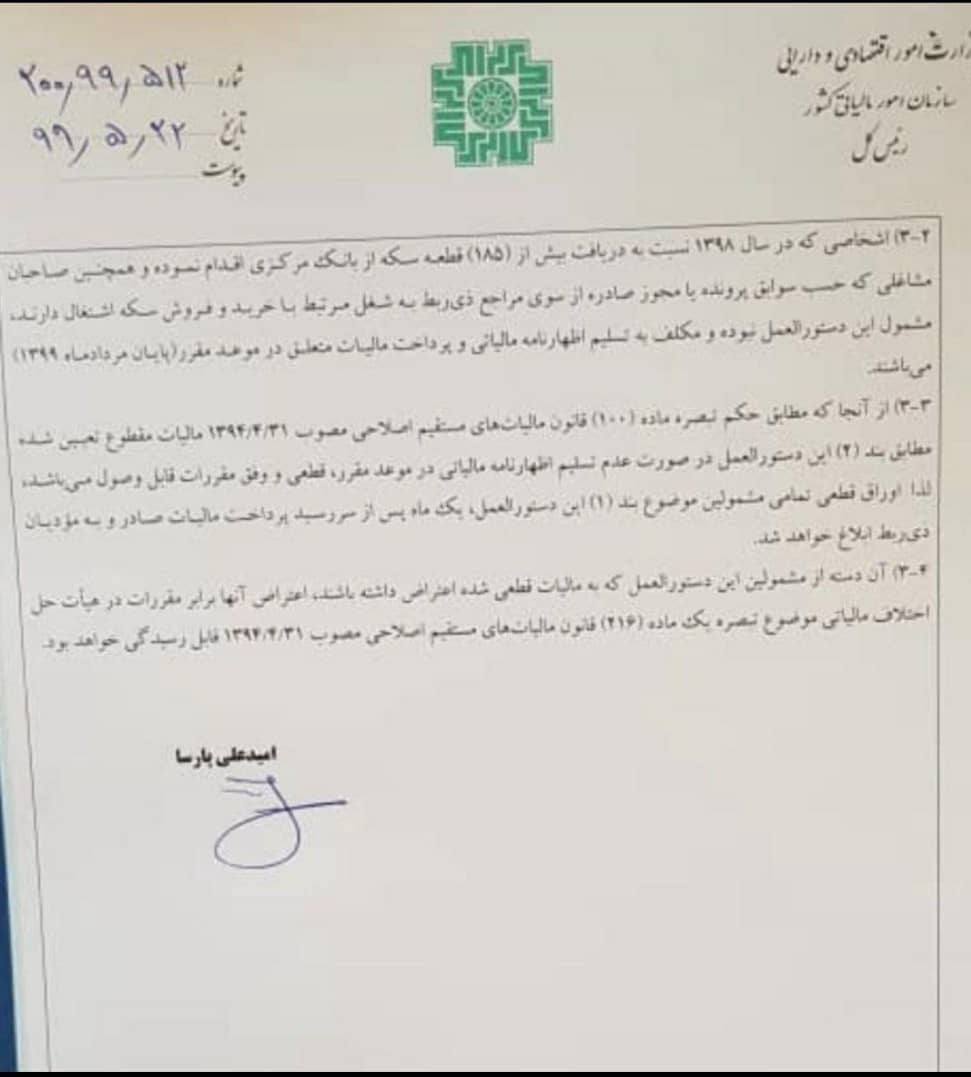 وزارت امور اقتصادی و دارایی
سازمان امور مالیاتی کشور
رئیس کل
شماره ۲۰۰٫۹۹٫۵۱۲
تاریخ ۹۹٫۵٫۲۲
پیوست
۳-۲) اشخاصی که در سال ۱۳۹۸ نسبت به دریافت بیش از (۱۸۵) قطعه سکه از بانک مرکزی اقدام نموده و همچنین صاحبان
مشاغلی که حسب سوابق پرونده یا مجوز صادره از سوی مراجع ذی‌ربط به شغل مرتبط با خرید و فروش سکه اشتغال دارند،
مشمول این دستورالعمل نبوده و مکلف به تسلیم اظهارنامه مالیاتی و پرداخت مالیات متعلق در موعد مقرر(پایان مردادماه ۱۳۹۹)
می‌باشند.
۳-۳) از آنجا که مطابق حکم تبصره ماده (۱۰۰) قانون مالیات‌های مستقیم اصلاحی مصوب ۱۳۹۴/۴/۳۱ مالیات مقطوع تعیین شده
مطابق بند (۲) این دستورالعمل در صورت عدم تسلیم اظهارنامه مالیاتی در موعد مقرر، قطعی و وفق مقررات قابل وصول می‌باشد،
لذا اوراق قطعی تمامی مشمولین موضوع بند (۱) این دستورالعمل، یک ماه پس از سررسید پرداخت مالیات صادر و به مؤدیان
ذی‌ربط ابلاغ خواهد شد.
۳-۴) آن دسته از مشمولین این دستورالعمل که به مالیات قطعی شده اعتراض داشته باشند، اعتراض آنها برابر مقررات در هیأت حل
اختلاف مالیاتی موضوع تبصره یک ماده (۲۱۶) قانون مالیات‌های مستقیم اصلاحی مصوب ۱۳۹۴/۴/۳۱ قابل رسیدگی خواهد بود.
امیدعلی پارسا